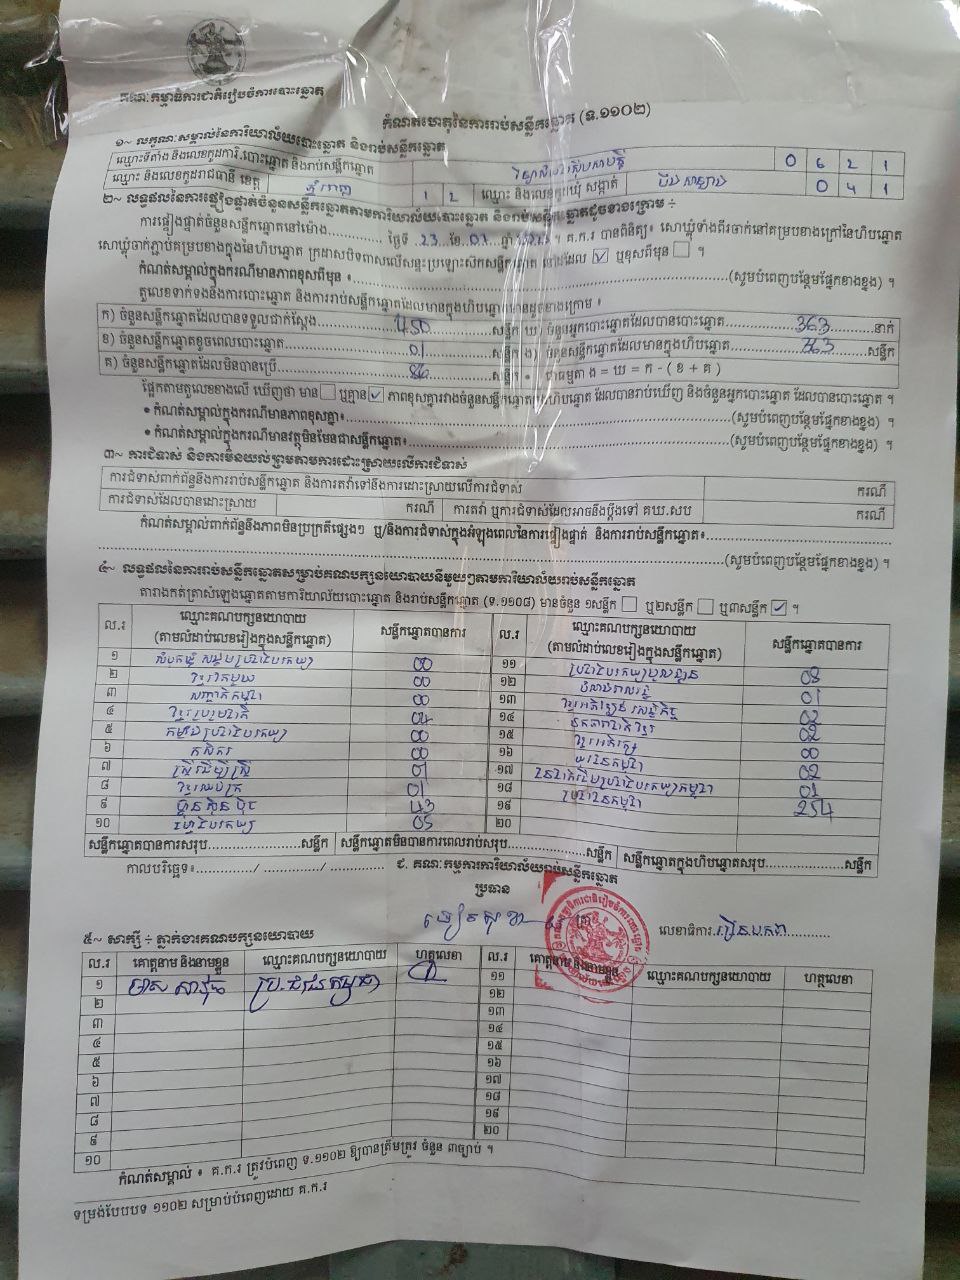 គណៈកម្មាធិការជាតិរៀបចំការបោះឆ្នោត
កំណត់ហេតុនៃការរាប់សន្លឹកឆ្នោត (ទ.១១០២)
១~ លក្ខណៈសម្គាល់នៃការិយាល័យបោះឆ្នោត និងរាប់សន្លឹកឆ្នោត
ឈ្មោះទីតាំង និងលេខកូដការិ.បោះឆ្នោត និងរាប់សន្លឹកឆ្នោត 0 6 2 1
ឈ្មោះ និងលេខកូដរាជធានី ខេត្ត ភ្នំពេញ 1 2 ឈ្មោះ និងលេខកូដឃុំ សង្កាត់ 0 4 1
២~ លទ្ធផលនៃការផ្ទៀងផ្ទាត់ចំនួនសន្លឹកឆ្នោតតាមការិយាល័យបោះឆ្នោត និងរាប់សន្លឹកឆ្នោតដូចខាងក្រោម ÷
ការផ្ទៀងផ្ទាត់ចំនួនសន្លឹកឆ្នោតនៅម៉ោង............ ថ្ងៃទី 23 ខែ 07 ឆ្នាំ ។ គ.ក.រ បានពិនិត្យ៖ សោឃ្លុំទាំងពីរចាក់នៅគម្របខាងក្រៅនៃហិបឆ្នោត
សោឃ្លុំចាក់ភ្ជាប់គម្របខាងក្នុងនៃហិបឆ្នោត ក្រដាសបិទពាសលើសន្ទះប្រឡោះស៊កសន្លឹកឆ្នោត នៅដដែល ☑ ឬខុសពីមុន ☐ ។
កំណត់សម្គាល់ក្នុងករណីមានភាពខុសពីមុន ៖............(សូមបំពេញបន្ថែមផ្នែកខាងខ្នង) ។
តួលេខទាក់ទងនឹងការបោះឆ្នោត និងការរាប់សន្លឹកឆ្នោតដែលមានក្នុងហិបឆ្នោតមានដូចខាងក្រោម ៖
ក) ចំនួនសន្លឹកឆ្នោតដែលបានទទួលជាក់ស្តែង 450 សន្លឹក ឃ) ចំនួនអ្នកបោះឆ្នោតដែលបានបោះឆ្នោត 363 នាក់
ខ) ចំនួនសន្លឹកឆ្នោតខូចពេលបោះឆ្នោត 01 សន្លឹក ង) ចំនួនសន្លឹកឆ្នោតដែលមានក្នុងហិបឆ្នោត 363 សន្លឹក
គ) ចំនួនសន្លឹកឆ្នោតដែលមិនបានប្រើ 86 សន្លឹក • ជាធម្មតា ង = ឃ = ក - ( ខ + គ )
ផ្អែកតាមតួលេខខាងលើ ឃើញថា មាន ☐ ឬគ្មាន ☑ ភាពខុសគ្នារវាងចំនួនសន្លឹកឆ្នោតក្នុងហិបឆ្នោត ដែលបានរាប់ឃើញ និងចំនួនអ្នកបោះឆ្នោត ដែលបានបោះឆ្នោត ។
• កំណត់សម្គាល់ក្នុងករណីមានភាពខុសគ្នា៖............(សូមបំពេញបន្ថែមផ្នែកខាងខ្នង) ។
• កំណត់សម្គាល់ក្នុងករណីមានវត្ថុមិនមែនជាសន្លឹកឆ្នោត៖............(សូមបំពេញបន្ថែមផ្នែកខាងខ្នង) ។
៣~ ការជំទាស់ និងការមិនយល់ព្រមតាមការដោះស្រាយលើការជំទាស់
ការជំទាស់ពាក់ព័ន្ធនឹងការរាប់សន្លឹកឆ្នោត និងការតវ៉ាទៅនឹងការដោះស្រាយលើការជំទាស់ ករណី
ការជំទាស់ដែលបានដោះស្រាយ ករណី ការតវ៉ា ឬការជំទាស់ដែលអាចនឹងប្តឹងទៅ គឃ.សប ករណី
កំណត់សម្គាល់ពាក់ព័ន្ធនឹងភាពមិនប្រក្រតីផ្សេងៗ ឬ/និងការជំទាស់ក្នុងអំឡុងពេលនៃការផ្ទៀងផ្ទាត់ និងការរាប់សន្លឹកឆ្នោត៖............
............(សូមបំពេញបន្ថែមផ្នែកខាងខ្នង) ។
៤~ លទ្ធផលនៃការរាប់សន្លឹកឆ្នោតសម្រាប់គណបក្សនយោបាយនីមួយៗតាមការិយាល័យរាប់សន្លឹកឆ្នោត
តារាងកត់ត្រាសំឡេងឆ្នោតតាមការិយាល័យបោះឆ្នោត និងរាប់សន្លឹកឆ្នោត (ទ.១១០៨) មានចំនួន ១សន្លឹក ☐ ឬ២សន្លឹក ☐ ឬ៣សន្លឹក ☑ ។
ល.រ ឈ្មោះគណបក្សនយោបាយ (តាមលំដាប់លេខរៀងក្នុងសន្លឹកឆ្នោត) សន្លឹកឆ្នោតបានការ ល.រ ឈ្មោះគណបក្សនយោបាយ (តាមលំដាប់លេខរៀងក្នុងសន្លឹកឆ្នោត) សន្លឹកឆ្នោតបានការ
១ សំបុកឃ្មុំ សង្គមប្រជាធិបតេយ្យ 00 ១១ 08
២ ខ្មែររួមមួយ 00 ១២ 01
៣ សញ្ជាតិកម្ពុជា 00 ១៣ ខ្មែរអភិវឌ្ឍន៍ សេដ្ឋកិច្ច 02
៤ ខ្មែររួបរួមជាតិ 04 ១៤ ឯកភាពជាតិខ្មែរ 02
៥ កម្លាំងប្រជាធិបតេយ្យ 00 ១៥ ខ្មែរអភិរក្ស 00
៦ កសិករ 00 ១៦ យុវជនកម្ពុជា 02
៧ ស្ត្រីដើម្បីស្ត្រី 01 ១៧ 01
៨ ខ្មែរឈប់ក្រ 01 ១៨ ប្រជាជនកម្ពុជា 254
៩ ហ៊្វុនស៊ិនប៉ិច 43 ១៩
១០ ធម្មាធិបតេយ្យ 05 ២០
សន្លឹកឆ្នោតបានការសរុប............សន្លឹក សន្លឹកឆ្នោតមិនបានការពេលរាប់សរុប............សន្លឹក សន្លឹកឆ្នោតក្នុងហិបឆ្នោតសរុប............សន្លឹក
កាលបរិច្ឆេទ៖............/ ............/ ............ ជ. គណៈកម្មការការិយាល័យរាប់សន្លឹកឆ្នោត
ប្រធាន
លេខាធិការ............
៥~ សាក្សី ÷ ភ្នាក់ងារគណបក្សនយោបាយ
ល.រ គោត្តនាម និងនាមខ្លួន ឈ្មោះគណបក្សនយោបាយ ហត្ថលេខា ល.រ គោត្តនាម និងនាមខ្លួន ឈ្មោះគណបក្សនយោបាយ ហត្ថលេខា
១ ១១
២ ១២
៣ ១៣
៤ ១៤
៥ ១៥
៦ ១៦
៧ ១៧
៨ ១៨
៩ ១៩
១០ ២០
កំណត់សម្គាល់ ៖ គ.ក.រ ត្រូវបំពេញ ទ.១១០២ ឱ្យបានត្រឹមត្រូវ ចំនួន ៣ច្បាប់ ។
ទម្រង់បែបបទ ១១០២ សម្រាប់បំពេញដោយ គ.ក.រ